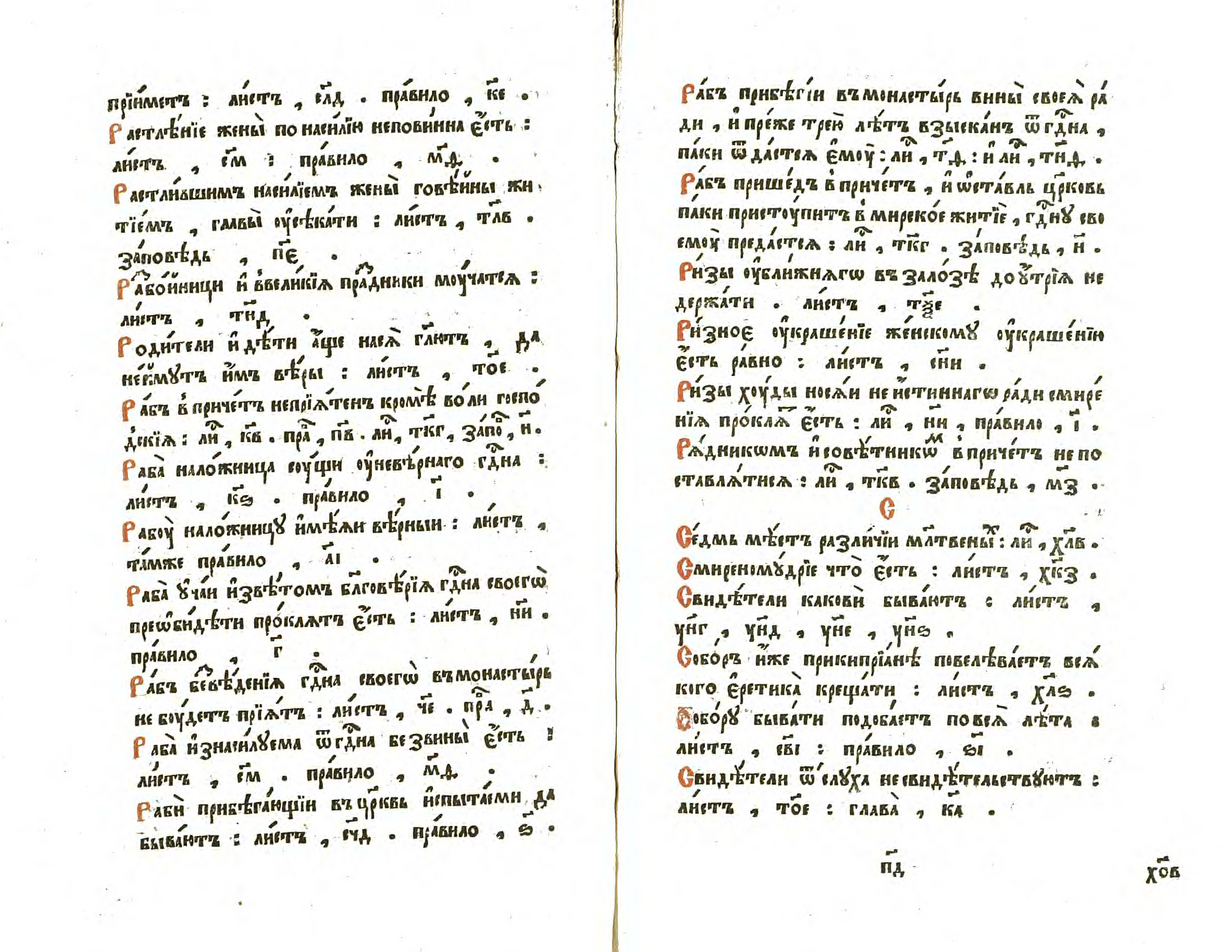 прїи́метъ : ли́стъ , сл҃д . пра́вило , к҃е .
Растлѣ́нїе жены̀ по наси́лїю непови́нна є҆́сть :
ли́стъ , с҃м : пра́вило , м҃д .
Растли́вшимъ наси́лїемъ жены̀ говѣ́йны жи
тїе́мъ , главы̀ ᲂу҆сѣка́ти : ли́стъ , тл҃в .
за́повѣдь , п҃є .
Разбо́йницы и҆ в вели́кїѧ пра́здники мо́учатсѧ :
ли́стъ , тн҃д .
Роди́тели и҆ дѣ́ти а҆́ще на сѧ̀ гл҃ютъ , да
не и҆́мутъ и҆̀мъ вѣ́ры : ли́стъ , то҃є .
Ра́бъ в при́четъ непрїѧ́тенъ кромѣ̀ во́ли госпо́
дскїѧ : лиⷭ҇ , к҃в . праⷡ҇ , п҃в . лиⷭ҇ , тк҃г , запоⷡ҇ , и҃ .
Раба̀ нало́жница со́ущи ᲂу҆ невѣ́рнаго гдⷭ҇на :
ли́стъ , к҃ѕ . пра́вило , і҃ .
Рабоу̀ нало́жницꙋ и҆мѣ́ѧи вѣ́рныи : ли́стъ ,
та́мже пра́вило , а҃і .
Раба̀ ᲂу҆ча́и и҆звѣ́томъ бл҃говѣ́рїѧ гдⷭ҇на своегѡ̀
преѡби́дѣти про́клѧтъ є҆́сть : ли́стъ , н҃и .
пра́вило , г҃ .
Ра́бъ без вѣ́денїѧ гдⷭ҇на своегѡ̀ въ монасты́рь
не бо́удетъ прїѧ́тъ : ли́стъ , ч҃е . праⷡ҇ , д҃ .
Раба̀ и҆знаси́лꙋема ѿ гдⷭ҇на без вины̀ є҆́сть :
ли́стъ , с҃м . пра́вило , м҃д .
Рабѝ прибѣга́ющїи въ цр҃ковь и҆спыта́еми да
быва́ютъ : ли́стъ , сч҃д . пра́вило , ѕ҃ .
Ра́бъ прибѣ́гїи въ монасты́рь вины̀ своеѧ̀ ра́
ди , и҆ пре́же трею̀ лѣ́тъ взыска́нъ ѿ гдⷭ҇на ,
па́ки ѿда́стсѧ є҆моу̀ : лиⷭ҇ , т҃д : и҆ лиⷭ҇ , тн҃д .
Ра́бъ прише́дъ в при́четъ , и҆ ѡ҆ста́вль цр҃ковь
па́ки присто́упитъ в мирско́е житїѐ , гдⷭ҇нꙋ сво
емоу̀ преда́стсѧ : лиⷭ҇ , тк҃г . за́повѣдь , и҃ .
Ри́зы ᲂу҆бли́жнѧгѡ въ зало́зѣ до ᲂу҆́трїѧ не
держа́ти . ли́стъ , тѯ҃е .
Ри́зноє ᲂу҆краше́нїе же́нскомꙋ ᲂу҆краше́нїю
є҆́сть ра́вно : ли́стъ , сн҃и .
Ри́зы хо́уды носѧ́и не и҆́стиннагѡ ра́ди смире́
нїѧ про́клѧⷮ є҆́сть : лиⷭ҇ , н҃и , пра́вило , і҃ .
Рѧ́дникѡмъ и҆ совѣ́тникѡⷨ в при́четъ не по
ставлѧ́тисѧ : лиⷭ҇ , тк҃в . за́повѣдь , м҃з .
С
Се́дмь мѣ́стъ разли́чїи мл҃твены́хъ : лиⷭ҇ , хл҃в .
Смиреномꙋ́дрїе что̀ є҆́сть : ли́стъ , хк҃з .
Свидѣ́тели какові́ быва́ютъ : ли́стъ ,
ун҃г , ун҃д , ун҃е , ун҃ѕ .
Собо́ръ и҆́же при кипрїа́нѣ повелѣва́етъ всѧ́
кого є҆ретика̀ креща́ти : ли́стъ , хл҃ѕ .
Собо́рꙋ быва́ти подоба́етъ по всѧ̀ лѣ́та :
ли́стъ , св҃і : пра́вило , ѕ҃і .
Свидѣ́тели ѿ слꙋ́ха не свидѣ́тельствꙋютъ :
ли́стъ , то҃є : глава̀ , к҃а .
п҃д
хо҃в